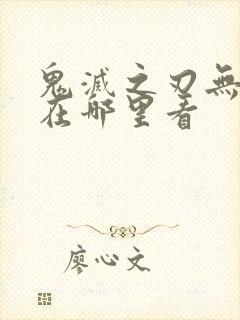 鬼滅之刃無
在哪里看
廖心文